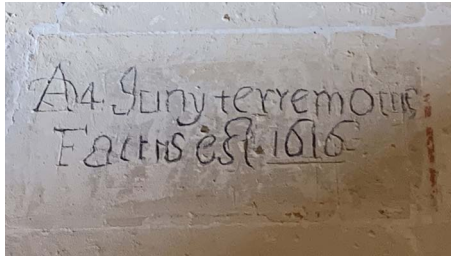 A 4 Juny terremotus
Factus est 1616